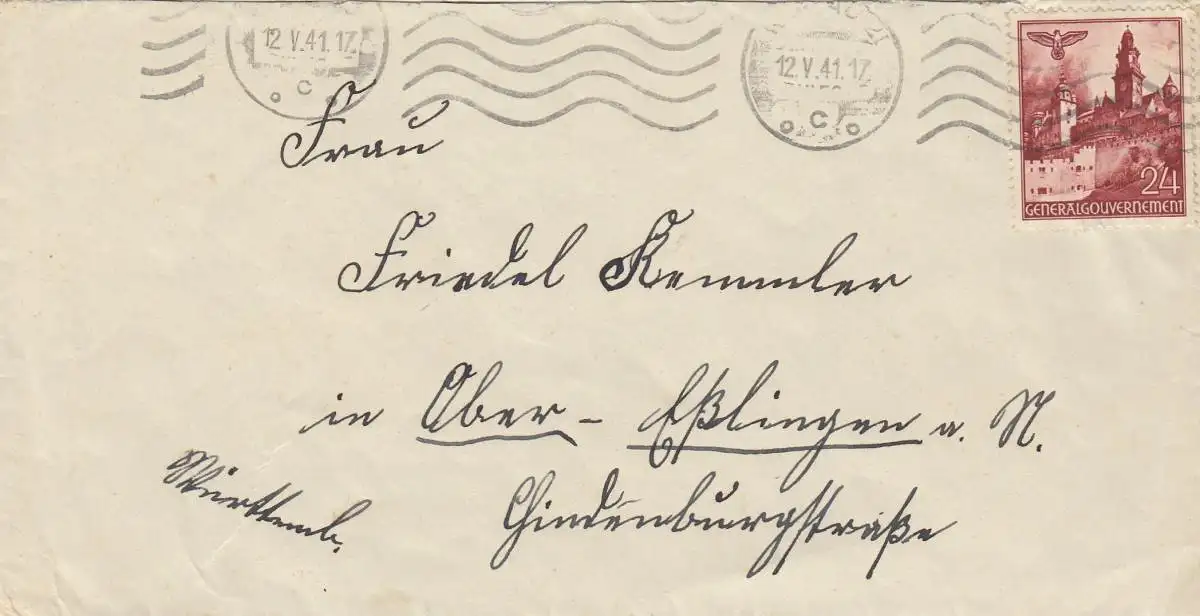 12.V.41.17
C
12.V.41.17
C
24
GENERALGOUVERNEMENT
Frau
Friedel Kemmler
in Ober-Eßlingen a. N.
Württemb.
Hindenburgstraße